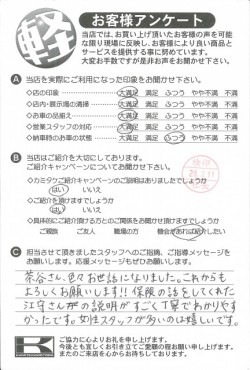 軽
お客様アンケート
当店では、お買い上げ頂いたお客様の声を可能
な限り現場に反映し、お客様により良い商品と
サービスを提供する事に努めています。
大変お手数ですが是非お声をお聞かせ下さい。
A 当店を実際にご利用になった印象をお聞かせ下さい。
◇店の印象 大満足 満足 ふつう やや不満 不満
◇店内・展示場の清掃 大満足 満足 ふつう やや不満 不満
◇お車の品揃え 大満足 満足 ふつう やや不満 不満
◇営業スタッフの対応 大満足 満足 ふつう やや不満 不満
◇納車時のお車の状態 大満足 満足 ふつう やや不満 不満
B 当店はご紹介を大切にしております。
ご紹介キャンペーンについてお聞かせ下さい。
◇カミタケご紹介キャンペーンのご説明はありましたでしょうか
はい いいえ
◇ご紹介を頂けますでしょうか
はい いいえ
◇具体的にご紹介頂ける方とのご関係をお聞かせ頂けますでしょうか
ご親族 ご友人 職場の方 機会があれば紹介したい
C 担当させて頂きましたスタッフへのご指摘、ご指導メッセージを
お願いします。応援メッセージもぜひお願いします。
茶谷さん、色々お世話になりました。これからも
よろしくお願いします!!保険の話をしてくれた
江守さんが の説明がすごく丁寧でわかりやす
かったです。女性スタッフが多いのは嬉しいです。
ご協力に心よりお礼を申し上げます。
今後とも宜しくお引き立てご愛顧の程お願い申し上げます。
またのご来店を心からお待ちしております。